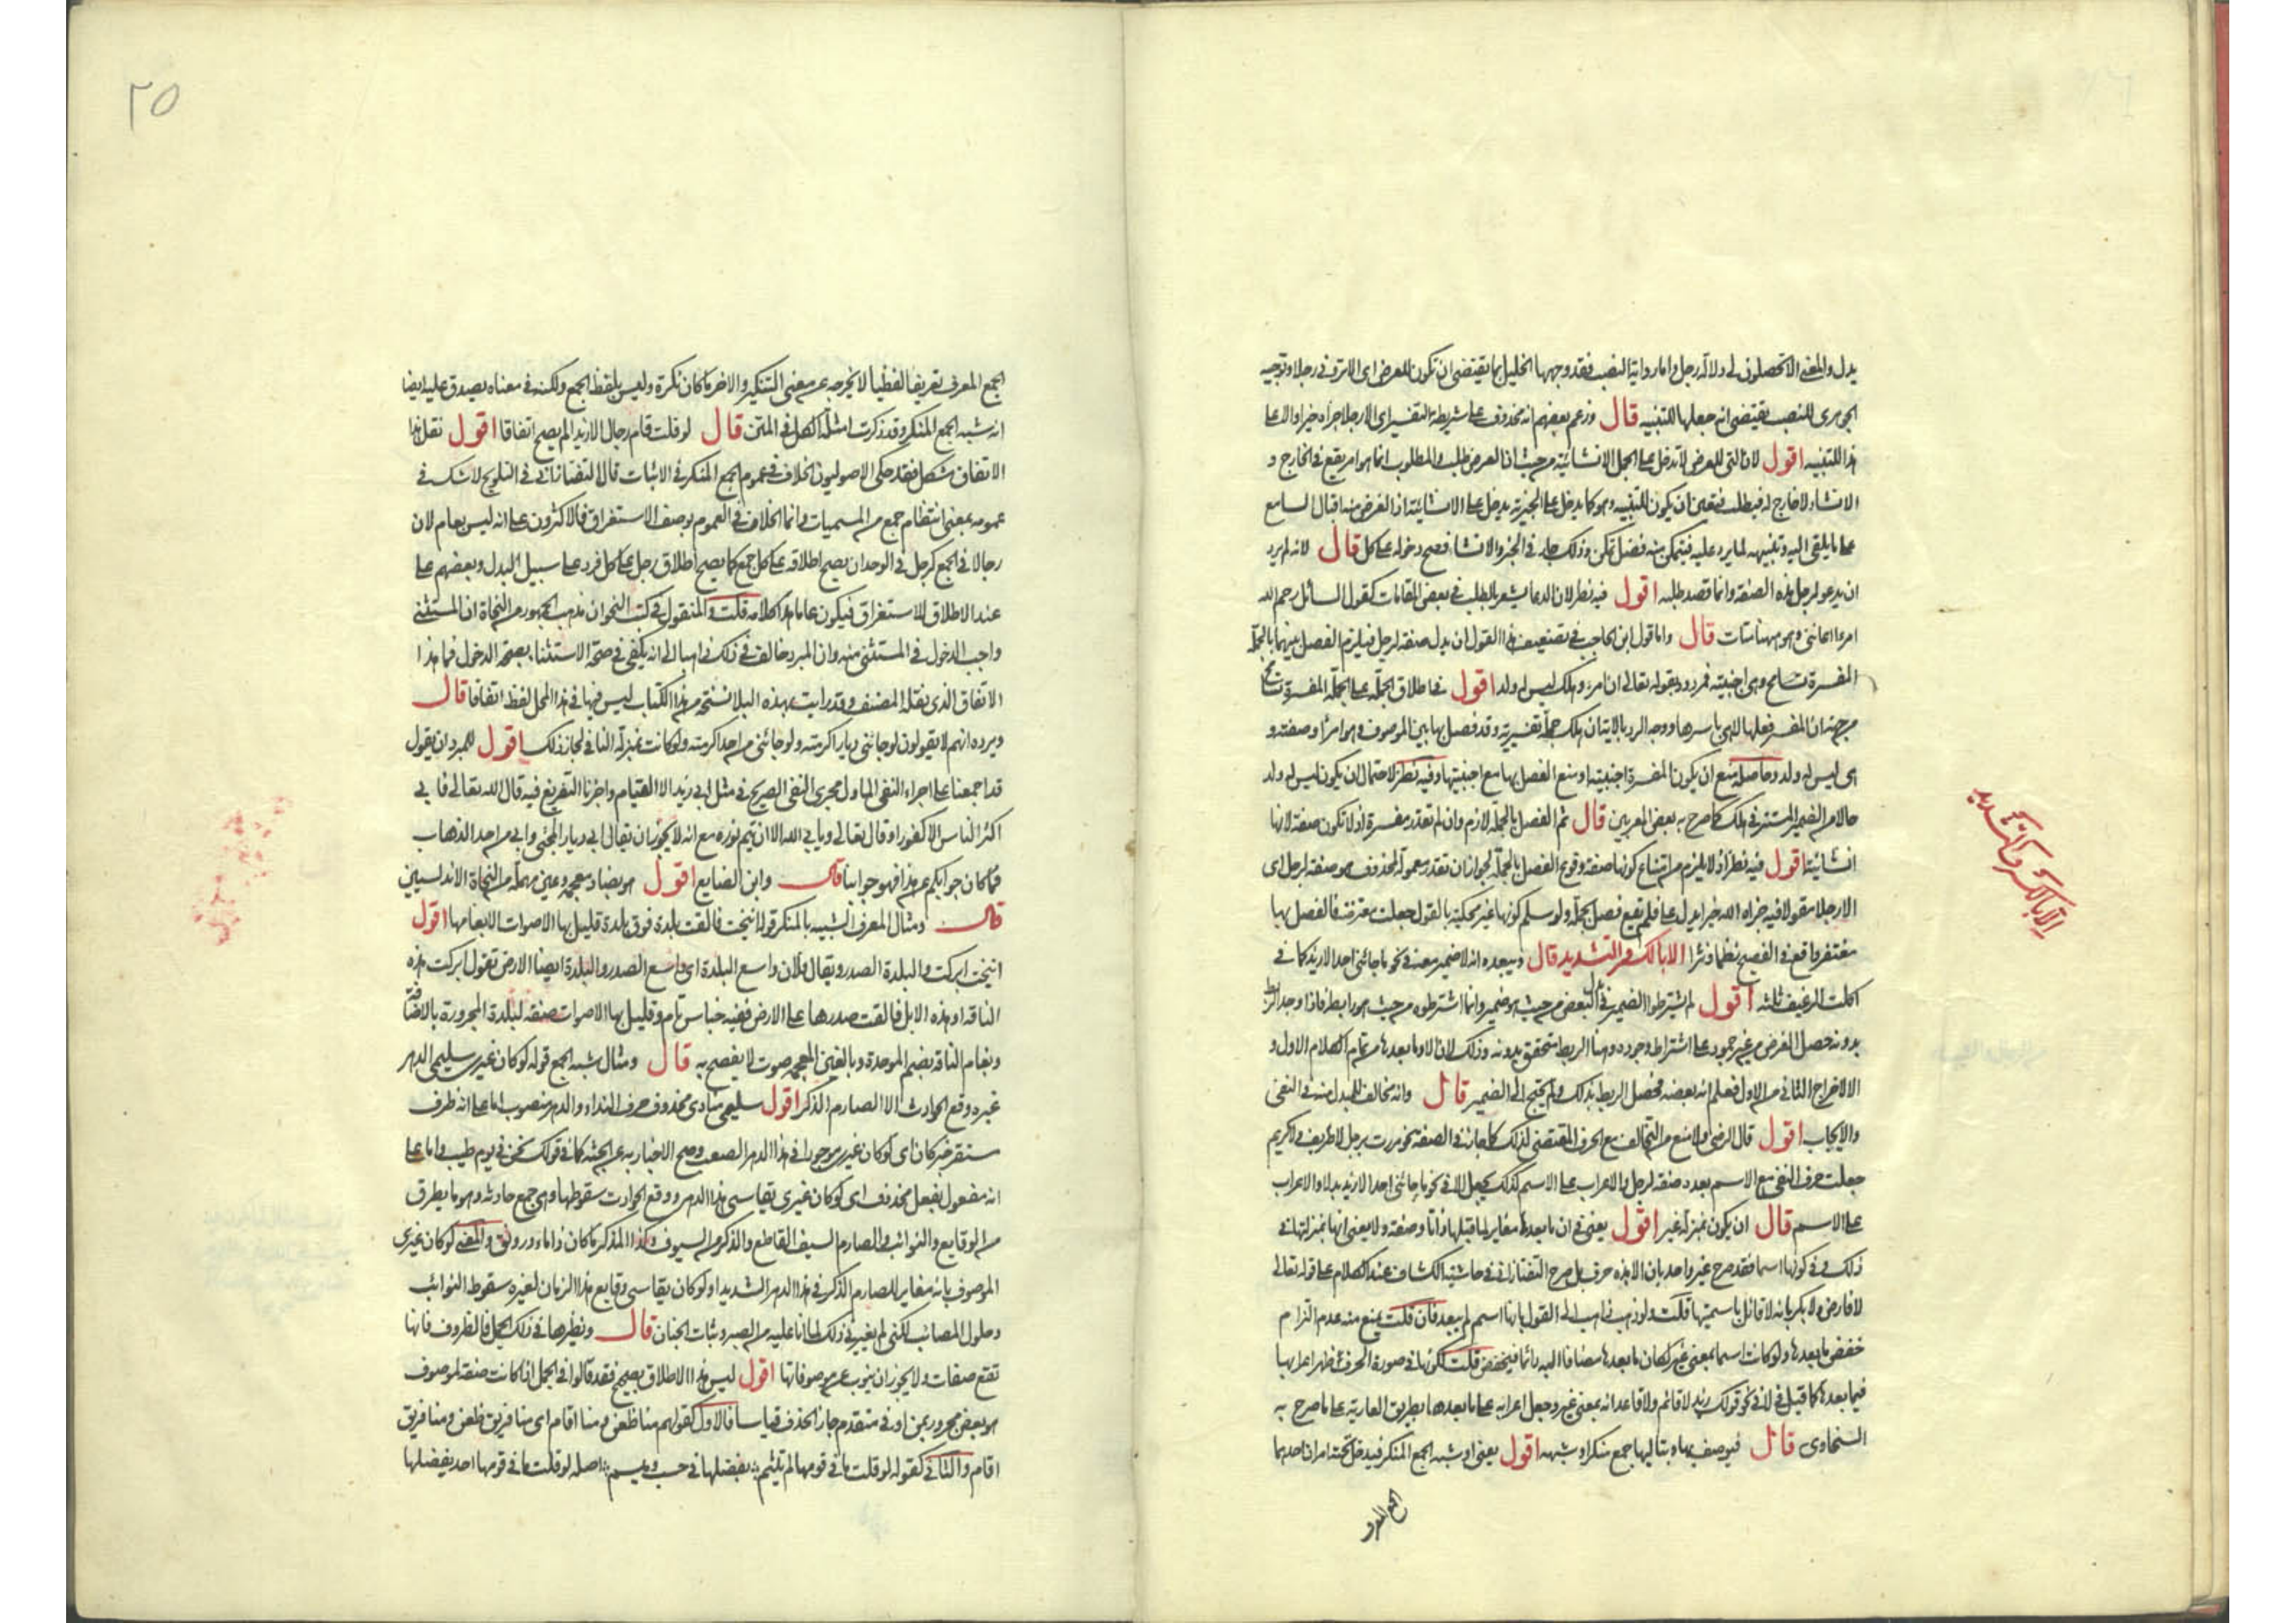 يدل والمعنى الا تحصلون لى دلالة رجل واما رواية النصب فقد وجهها الخليل بما يقتضى ان تكون للعرض اى الا ترونى رجلا وتوجيه
الجوهرى للنصب يقتضى انه جعلها للتنبيه قال وزعم بعضهم انه محذوف على شريطة التفسير اى الا رجلا جزاه خيرا والا على
هذا للتنبيه اقول لان التى للعرض لا تدخل على الجمل الانشائية من حيث ان العرض طلب والمطلوب انما هو امر يقع فى الخارج و
الانشاء لا خارج له فيطلب فتعين ان يكون للتنبيه وهو كما يدخل على الخبرية يدخل على الانشائية اذ الغرض منه اقبال السامع
على ما يلقى اليه وتنبيهه لما يرد عليه فيتمكن منه فضل تمكن وذلك جار فى الخبر والانشاء فصح دخوله على كل قال لانه لم يرد
ان يدعو لرجل هذه الصفة وانما قصد طلبه اقول فيه نظر لان الدعا يشعر بالطلب فى بعض المقامات كقول السائل رحم الله
امرءا اعاننى وهو مهنا متأت قال واما قول ابن الحاجب فى تضعيف هذا القول ان يدل صفة لرجل فيلزم الفصل بينهما بالجملة
المفسرة وهى اجنبية فمردود بقوله تعالى ان امرؤ هلك ليس له ولد اقول فى اطلاق الجملة على الجملة المفسرة تسامح
من جهة ان المفسر فعلها لا هى باسرها ووجه الرد بالاية ان هلك جملة تفسيرية وقد فصل بها بين الموصوف وهو امرؤ وصفته و
هى ليس له ولد وحاصله منع ان يكون المفسرة اجنبية او منع الفصل بها مع اجنبيتها وفيه نظر لاحتمال ان يكون ليس له ولد
حالا من الضمير المستتر فى هلك كما صرح به بعض المعربين قال ثم الفصل بالجملة لازم وان لم تقدر مفسرة اذ لا تكون صفة لانها
انشائية اقول فيه نظر اذ لا يلزم من امتناع كونها صفة وقوع الفصل بالجملة لجواز ان تقدر معمولة لمحذوف هو صفة لرجل اى
الا رجلا مقولا فيه جزاه الله خيرا يدل على فلم يقع فصل بجملة ولو سلم كونها غير محكية بالقول جعلت معترضة فالفصل بها
مغتفر واقع فى الفصيح نظما ونثرا الا بالكسر والتشديد قال ويبعده انه لا ضمير معه فى نحو ما جائنى احد الا زيد كما فى
اكلت الرغيف ثلثه اقول لم يشترطوا الضمير فى بدل البعض من حيث هو ضمير وانما اشترطوه من حيث هو رابط فاذا وجد الربط
بدونه حصل الغرض من غير جمود على اشتراط وجوده وهنا الربط متحقق بدونه وذلك لان الا وما بعدها من تمام الكلام الاول و
الا لاخراج الثانى من الاول فعلم انه بعضه فحصل الربط بذلك ولم يحتج الى الضمير قال وانه مخالف للمبدل منه فى النفى
والايجاب اقول قال الرضى ولا منع من التخالف مع الحرف المقتضى لذلك كما جاز فى الصفة نحو مررت برجل لا ظريف ولا كريم
جعلت حرف النفى مع الاسم بعده صفة لرجل والاعراب على الاسم كذلك يجعل الا فى نحو ما جائنى احد الا زيد بدلا والاعراب
على الاسم قال ان يكون بمنزلة غير اقول يعنى فى ان ما بعدها مغاير لما قبلها ذاتا وصفة ولا يعنى انها بمنزلتها فى
ذلك وفى كونها اسما فقد صرح غير واحد بان الا هذه حرف بل صرح التفتازانى فى حاشية الكشاف عند الكلام على قوله تعالى
لا فارض ولا بكر بانه لا قائل باسميتها قلت ولو ذهب ذاهب الى القول بانها اسم لم يبعد فان قلت يمنع منه عدم التزام
خفض ما بعدها ولو كانت اسما بمعنى غير لكان ما بعدها مضافا اليه دائما فيخفض قلت لكونها فى صورة الحرف ظهر اعرابها
فيما بعدها كما قيل فى لا فى نحو قولك زيد لا قائم ولا قاعد انه بمعنى غير وجعل اعرابه على ما بعدها بطريق العارية على ما صرح به
السخاوى قال فيوصف بها وبتاليها جمع منكر او شبهه اقول يعنى او شبه الجمع المنكر فيدخل تحته امران احدهما
الجمع المعرف
الا بالكسر والتشديد
٢٥
الجمع المعرف تعريفا لفظيا لا يخرجه عن معنى التنكير والاخر ما كان نكرة وليس بلفظ الجمع ولكنه فى معناه يصدق عليه ايضا
انه شبه الجمع المنكر وقد ذكرت امثلة الكل فى المتن قال لو قلت قام رجال الا زيدا لم يصح اتفاقا اقول نقل هذا
الاتفاق مشكل فقد حكى الاصوليون الخلاف فى عموم الجمع المنكر فى الاثبات قال التفتازانى فى التلويح لا شك فى
عمومه بمعنى انتظام جمع من المسميات وانما الخلاف فى العموم بوصف الاستغراق فالاكثرون على انه ليس بعام لان
رجالا فى الجمع كرجل فى الوحدان يصح اطلاقه على كل جمع كما يصح اطلاق رجل على كل فرد على سبيل البدل وبعضهم على
عند الاطلاق للاستغراق فيكون عاما هذا كلامه قلت والمنقول فى كتب النحو ان مذهب الجمهور من النحاة ان المستثنى
واجب الدخول فى المستثنى منه وان المبرد خالف فى ذلك ذاهبا الى انه يكفى فى صحة الاستثناء بصحة الدخول فما هذا
الاتفاق الذى نقله المصنف وقد رايت بهذه البلاد نسخة من هذا الكتاب ليس فيها فى هذا المحل لفظ اتفاقا قال
ويرده انهم لا يقولون لو جائنى ديار اكرمته ولو جائنى من احد اكرمته ولو كانت بمنزلة النافى لجاز ذلك اقول للمبرد ان يقول
قد اجمعنا على اجراء النفى الماول مجرى النفى الصريح فى مثل ابى زيد الا القيام واجزنا التفريغ فيه قال الله تعالى فابى
اكثر الناس الا كفورا وقال تعالى ويابى الله الا ان يتم نوره مع انه لا يجوز ان يقال ابى ديار المجئ وابى من احد الذهاب
فما كان جوابكم عن هذا فهو جوابنا قال وابن الضايع اقول هو بضاد معجمة وعين مهملة من النحاة الاندلسيين
قال ومثال المعرف الشبيه بالمنكر قوله انيخت فالقت بلدة فوق بلدة قليل بها الاصوات الا بغامها اقول
انيخت ابركت والبلدة الصدر ويقال فلان واسع البلدة اى واسع الصدر والبلدة ايضا الارض تقول ابركت هذه
الناقة او هذه الابل فالقت صدرها على الارض ففيه جناس تام وقليل بها الاصوات صفة لبلدة المجرورة بالاضافة
وبغام الناقة بضم الموحدة وبالغين المعجمة صوت لا يفصح به قال ومثال شبه الجمع قوله لو كان غيرى سليمى الدهر
غيره وقع الحوادث الا الصارم الذكر اقول سليمى منادى محذوف حرف النداء والدهر منصوب اما على انه ظرف
مستقر خبر كان اى لو كان غيرى موجودا فى هذا الدهر الصعب وصح الاخبار به عن الجثة كما فى قولك نحن فى يوم طيب واما على
انه مفعول بفعل محذوف اى لو كان غيرى يقاسى هذا الدهر ووقع الحوادث سقوطها وهى جمع حادثة وهو ما يطرق
من الوقايع والنوائب والصارم السيف القاطع والذكر من السيوف وكذا المذكر ما كان ذا ماء ورونق والمعنى لو كان غيرى
الموصوف بانه مغاير للصارم الذكر فى هذا الدهر الشديد او لو كان يقاسى وقايع هذا الزمان لغيره سقوط النوائب
وحلول المصائب لكنى لم يغيرنى ذلك لما انا عليه من الصبر وثبات الجنان قال ونظيرها فى ذلك الجمل فالظروف فانها
تقع صفات ولا يجوز ان ينوب عن موصوفاتها اقول ليس هذا الاطلاق بصحيح فقد قالوا فى الجمل اذا كانت صفة لموصوف
هو بعض مجرور بمن او فى متقدم جاز الحذف قياسا فالاول كقولهم منا ظعن ومنا اقام اى منا فريق ظعن ومنا فريق
اقام والثانى كقوله لو قلت ما فى قومها لم تيثم يفضلها فى حسب وميسم اصله لو قلت ما فى قومها احد يفضلها